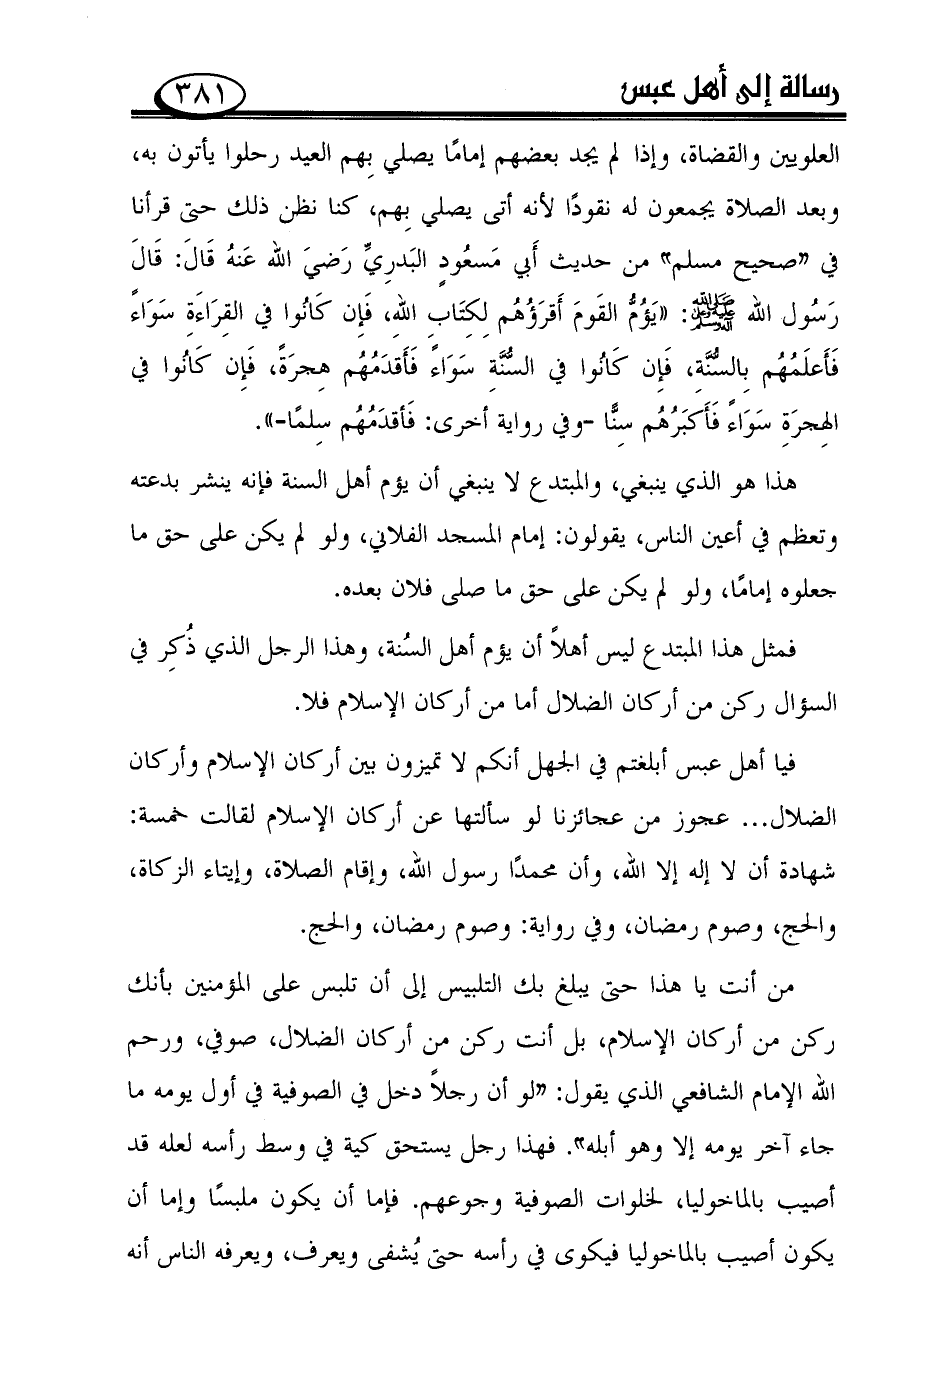 رسالة إلى أهل عبس
٣٨١
العلويين والقضاة، وإذا لم يجد بعضهم إمامًا يصلي بِهم العيد رحلوا يأتون به،
وبعد الصلاة يجمعون له نقودًا لأنه أتى يصلي بِهم، كنا نظن ذلك حتى قرأنا
في «صحيح مسلم» من حديث أَبِي مَسعُودٍ البَدرِيِّ رَضِيَ اللهُ عَنهُ قَالَ: قَالَ
رَسُول الله ﷺ: «يَؤُمُّ القَومَ أَقرَؤُهُم لِكتَابِ اللهِ، فَإِن كَانُوا فِي القِرَاءَةِ سَوَاءً
فَأَعلَمُهُم بِالسُّنَّةِ، فَإِن كَانُوا فِي السُّنَّةِ سَوَاءً فَأَقدَمُهُم هِجرَةً، فَإِن كَانُوا فِي
الهِجرَةِ سَوَاءً فَأَكبَرُهُم سِنًّا -وفي رواية أخرى: فَأَقدَمُهُم سِلمًا-».
هذا هو الذي ينبغي، والمبتدع لا ينبغي أن يؤم أهل السنة فإنه ينشر بدعته
وتعظم في أعين الناس، يقولون: إمام المسجد الفلاني، ولو لم يكن على حق ما
جعلوه إمامًا، ولو لم يكن على حق ما صلى فلان بعده.
فمثل هذا المبتدع ليس أهلاً أن يؤم أهل السُنة، وهذا الرجل الذي ذُكِر في
السؤال ركن من أركان الضلال أما من أركان الإسلام فلا.
فيا أهل عبس أبلغتم في الجهل أنكم لا تميزون بين أركان الإسلام وأركان
الضلال... عجوز من عجائزنا لو سألتها عن أركان الإسلام لقالت خمسة:
شهادة أن لا إله إلا الله، وأن محمدًا رسول الله، وإقام الصلاة، وإيتاء الزكاة،
والحج، وصوم رمضان، وفي رواية: وصوم رمضان، والحج.
من أنت يا هذا حتى يبلغ بك التلبيس إلى أن تلبس على المؤمنين بأنك
ركن من أركان الإسلام، بل أنت ركن من أركان الضلال، صوفي، ورحم
الله الإمام الشافعي الذي يقول: «لو أن رجلاً دخل في الصوفية في أول يومه ما
جاء آخر يومه إلا وهو أبله». فهذا رجل يستحق كية في وسط رأسه لعله قد
أصيب بالماخوليا، لخلوات الصوفية وجوعهم. فإما أن يكون ملبسًا وإما أن
يكون أصيب بالماخوليا فيكوى في رأسه حتى يُشفى ويعرف، ويعرفه الناس أنه